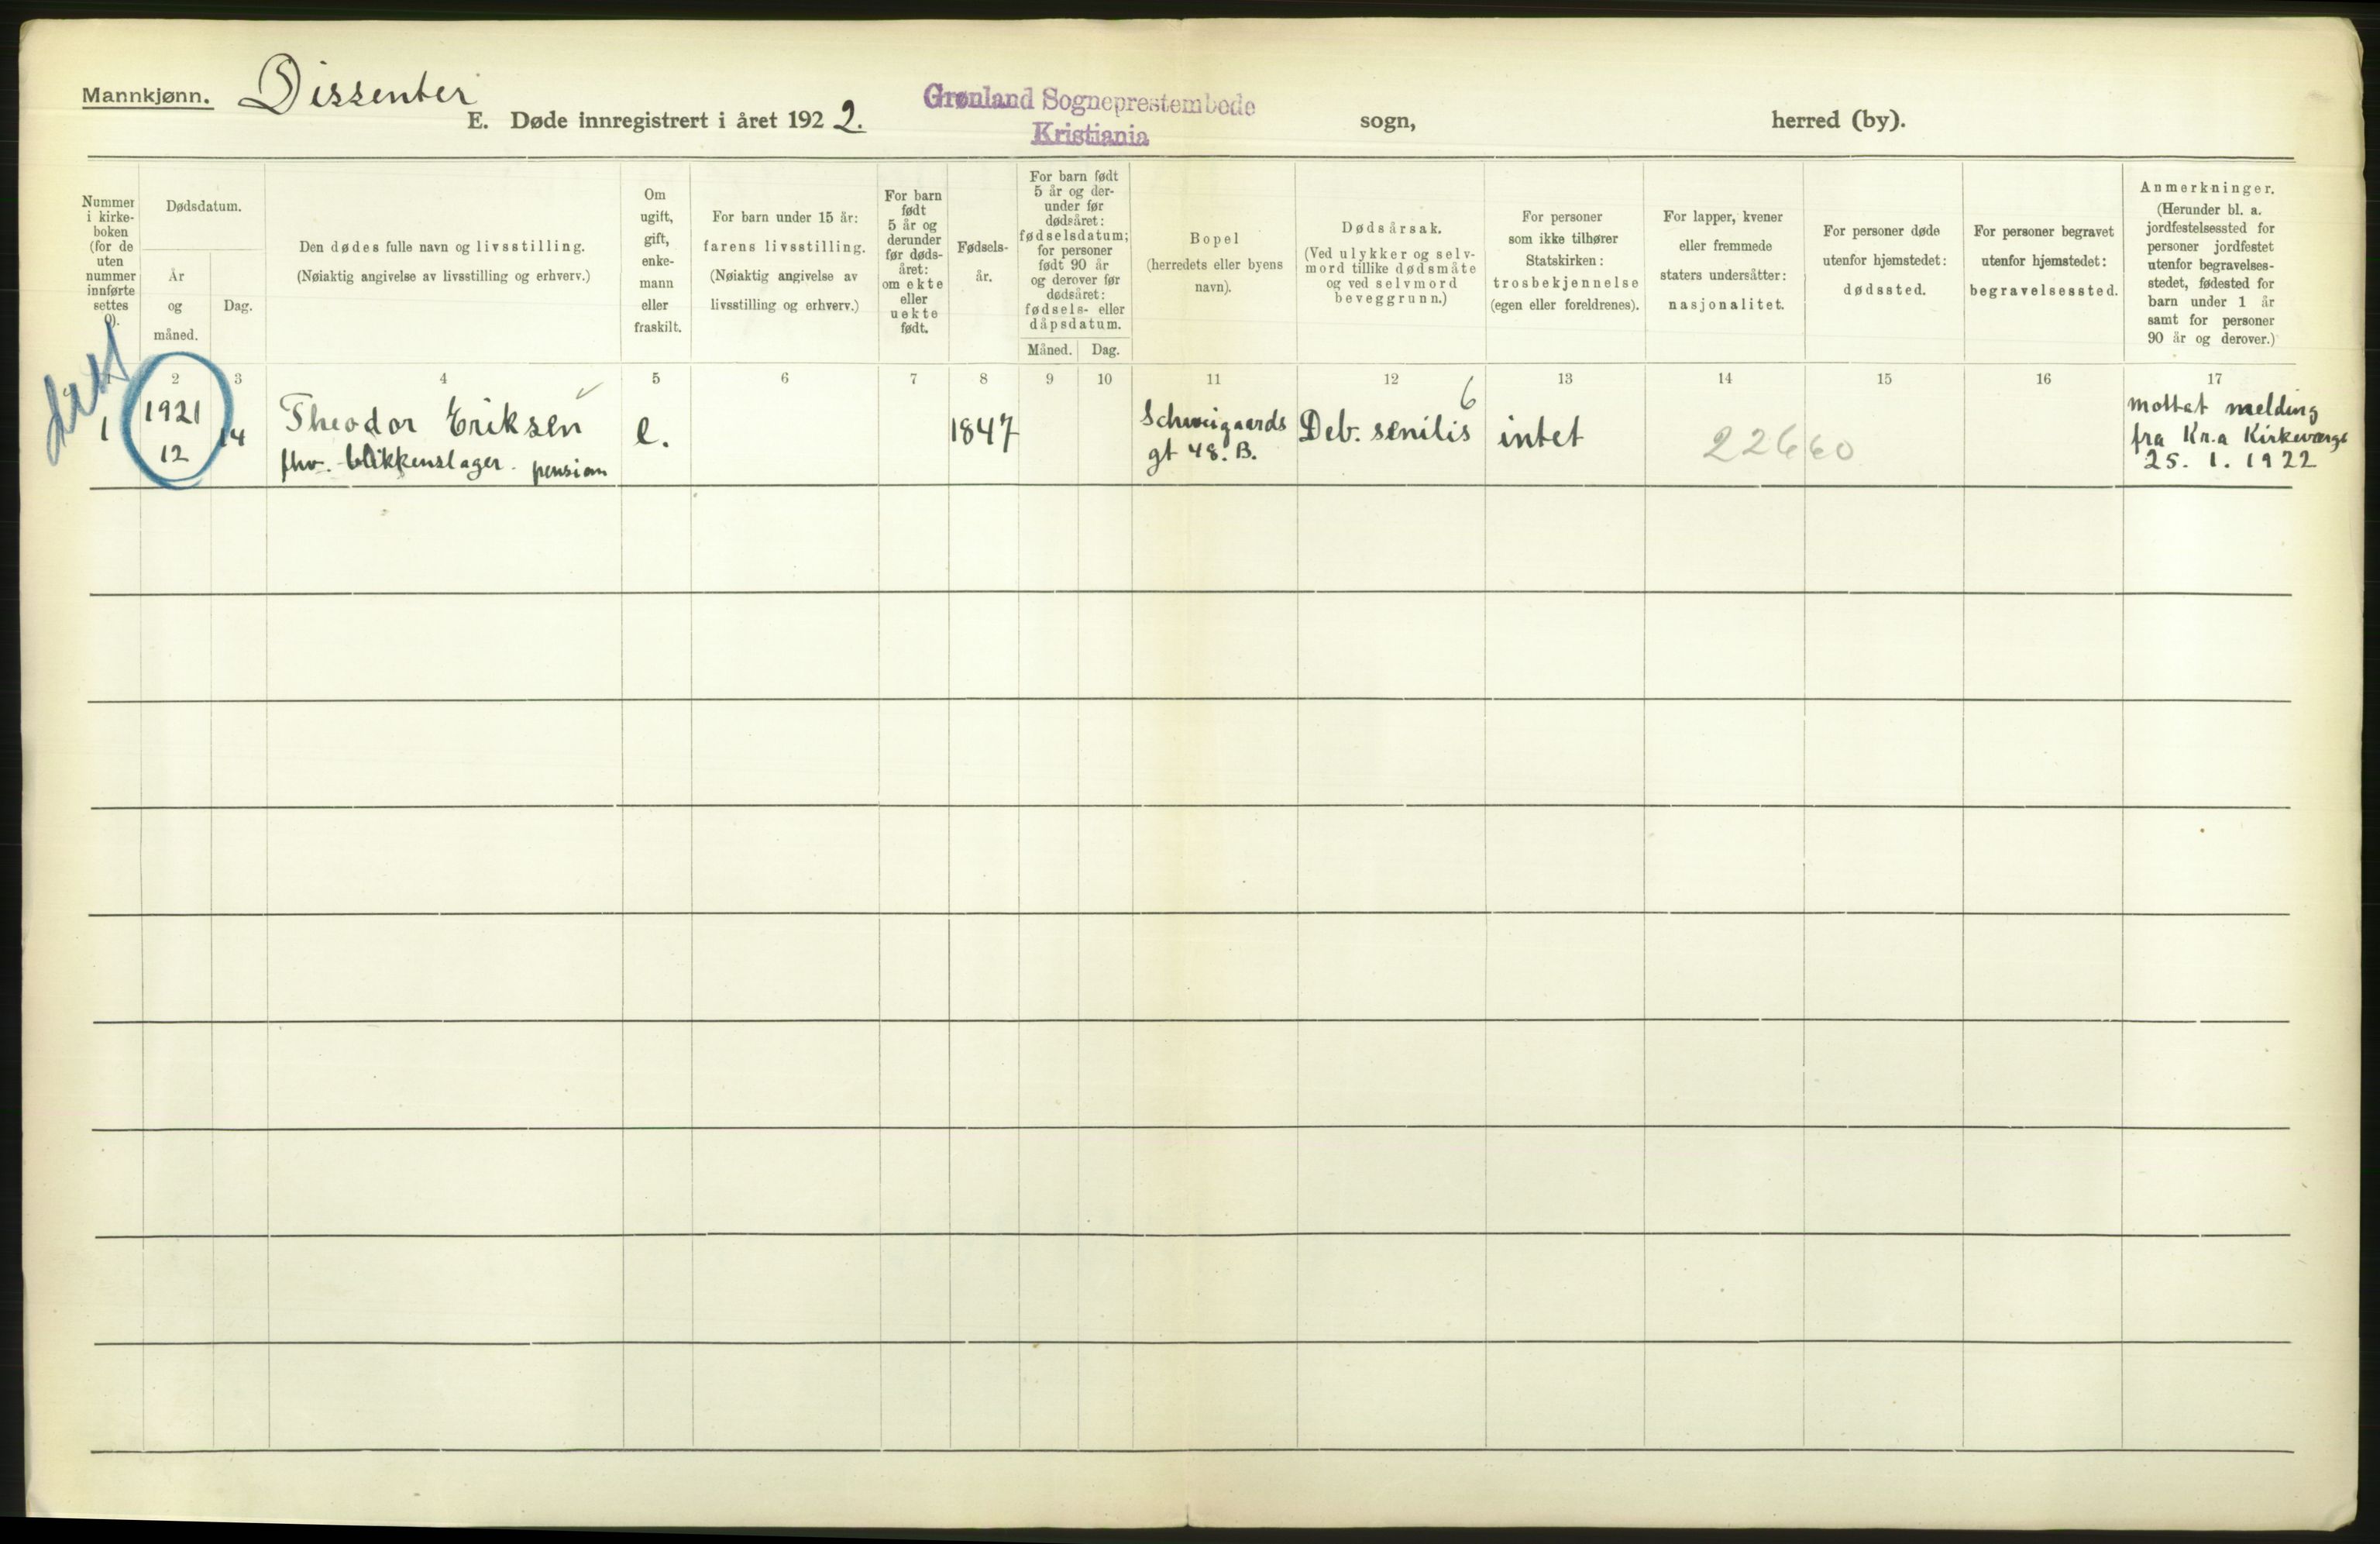 Mannkjønn. Dissenter
E. Døde innregistrert i året 1922. Grønland Sogneprestembede sogn, herred (by).
Kristiania
Nummer
i kirke-
boken
(for de
uten
nummer
innførte
settes
0).
Dødsdatum.
År
og
måned.
Dag.
Den dødes fulle navn og livsstilling.
(Nøiaktig angivelse av livsstilling og erhverv.)
Om
ugift,
gift,
enke-
mann
eller
fraskilt.
For barn under 15 år:
farens livsstilling.
(Nøiaktig angivelse av
livsstilling og erhverv.)
For barn
født
5 år og
derunder
før døds-
året:
om ekte
eller
uekte
født.
Fødsels-
år.
For barn født
5 år og der-
under før
dødsåret:
fødselsdatum;
for personer
født 90 år
og derover før
dødsåret:
fødsels- eller
dåpsdatum.
Måned. Dag.
Bopel
(herredets eller byens
navn).
Dødsårsak.
(Ved ulykker og selv-
mord tillike dødsmåte
og ved selvmord
beveggrunn.)
For personer
som ikke tilhører
Statskirken:
trosbekjennelse
(egen eller foreldrenes).
For lapper, kvener
eller fremmede
staters undersåtter:
nasjonalitet.
For personer døde
utenfor hjemstedet:
dødssted.
For personer begravet
utenfor hjemstedet:
begravelsessted.
Anmerkninger.
(Herunder bl. a.
jordfestelsessted for
personer jordfestet
utenfor begravelses-
stedet, fødested for
barn under 1 år
samt for personer
90 år og derover.)
1 2 3 4 5 6 7 8 9 10 11 12 13 14 15 16 17
1
1921
12
14
Theodor Eriksen
fhv. blikkenslager. pension
e.
1847
Schweigaards
gt 48. B.
6
Deb. senilis
intet
22660
mottat melding
fra Kr.a Kirkeværge
25. 1. 1922